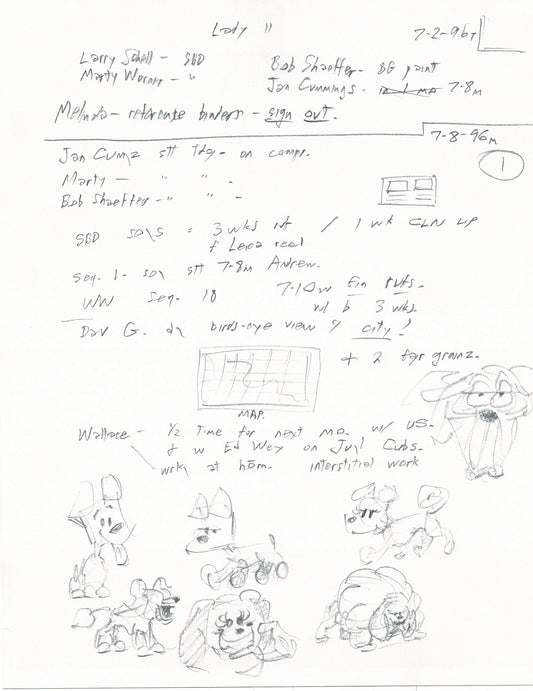 Lady II
7-2-96T
Larry Scholl - SBD
Marty Warner - "
Bob Shaeffer - BG paint
Jan Cummings - 7-8m
Melinda - reference binders - sign out.
7-8-96m
1
Jan Cumz stt Tdy - on compr.
Marty - " " -
Bob Shaeffer - " " -
SBD says = 3 wks rf / 1 wk CLN UP
f Leica reel
Seq. 1 - say stt 7-8m Andrew.
7-10w fin rufs.
WW Seq. 18 w/ b 3 wks.
Dav G. birds-eye view city!
+ 2 for grainz.
MAP.
Wallace - 1/2 Time for next mo. w/ us.
+ w Ed Wex on Jugl Cubs.
wrkg at hōm. interstitial work